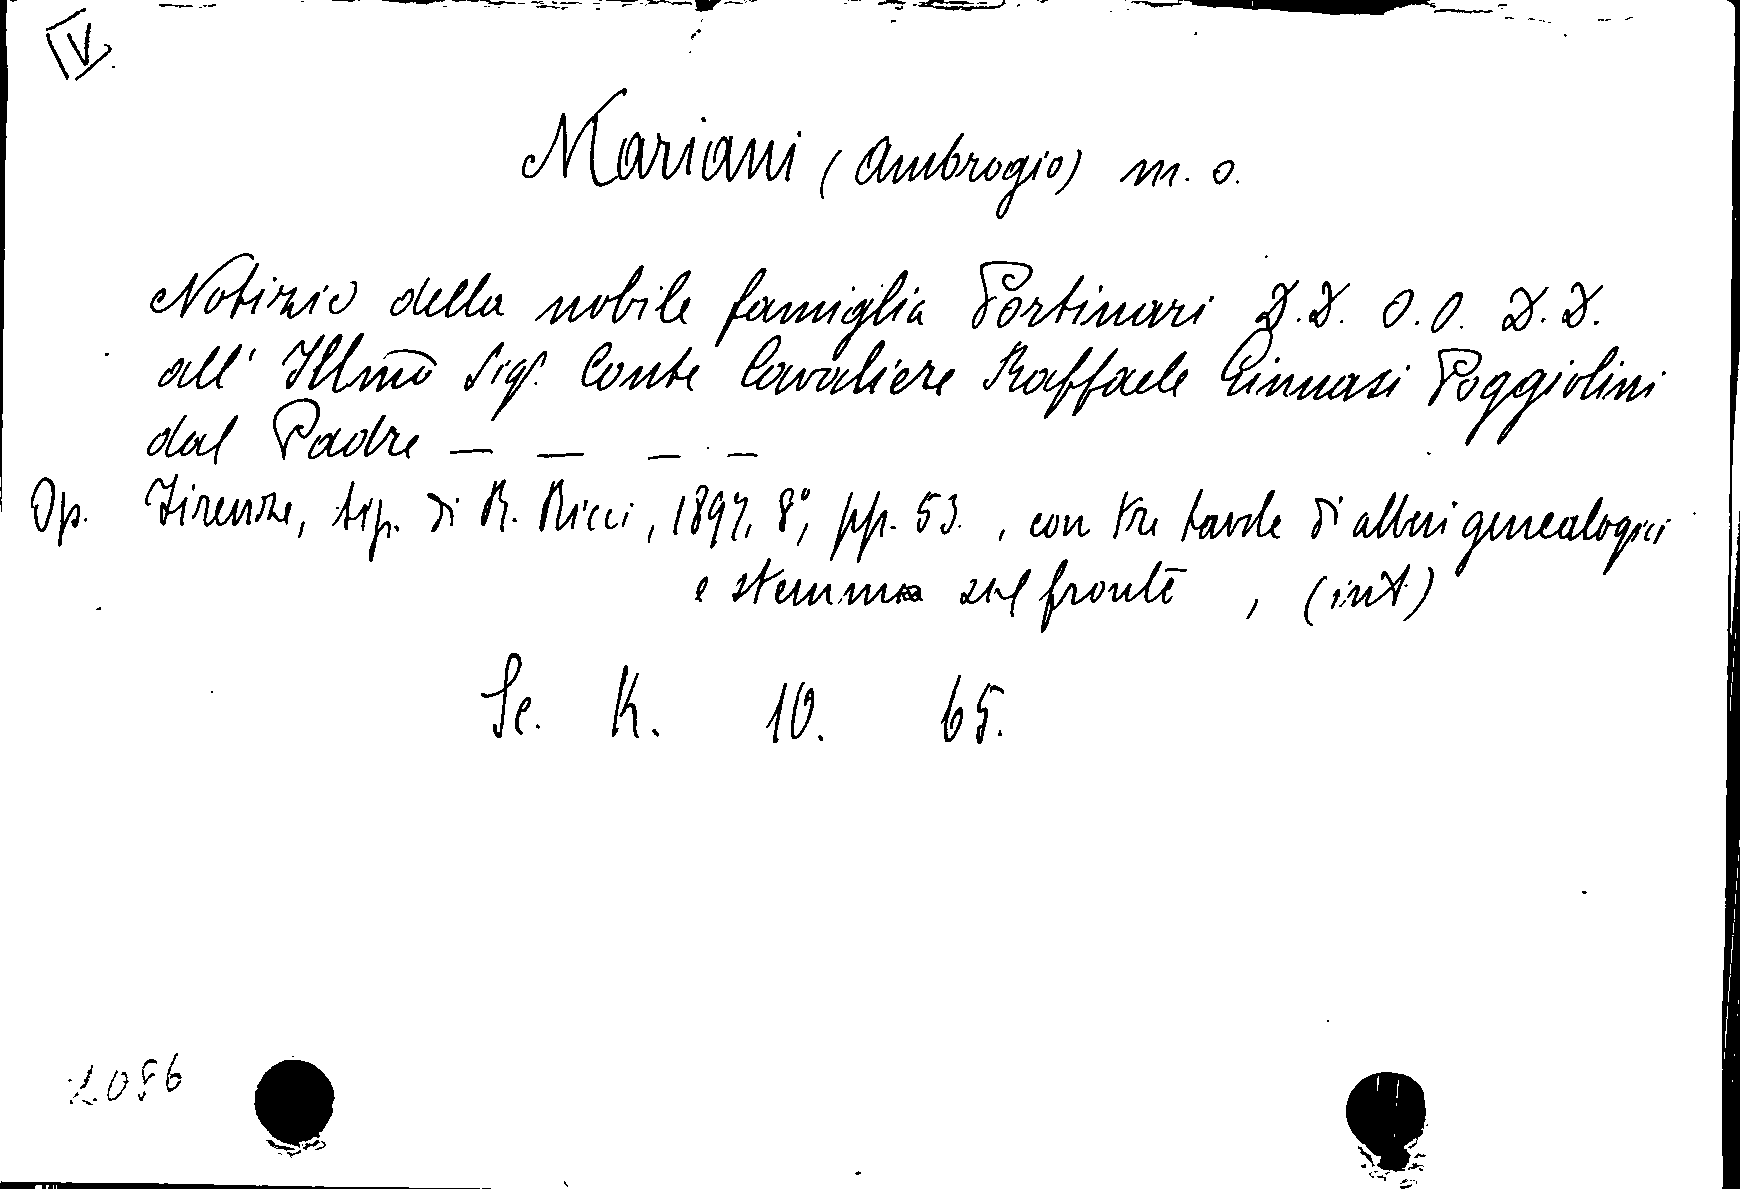 IV
Mariani (Ambrogio) m. o.
Notizie della nobile famiglia Portinari D.D. O.O. D.D.
all' Illmo Sigr. Conte Cavaliere Raffaele Ginnasi Poggiolini
dal Padre — — — —
Op. Firenze, tip. di R. Ricci, 1897, 8°, pp. 53. , con tre tavole di alberi genealogici
e stemma sul fronte , (int)
Sc. K. 10. 65.